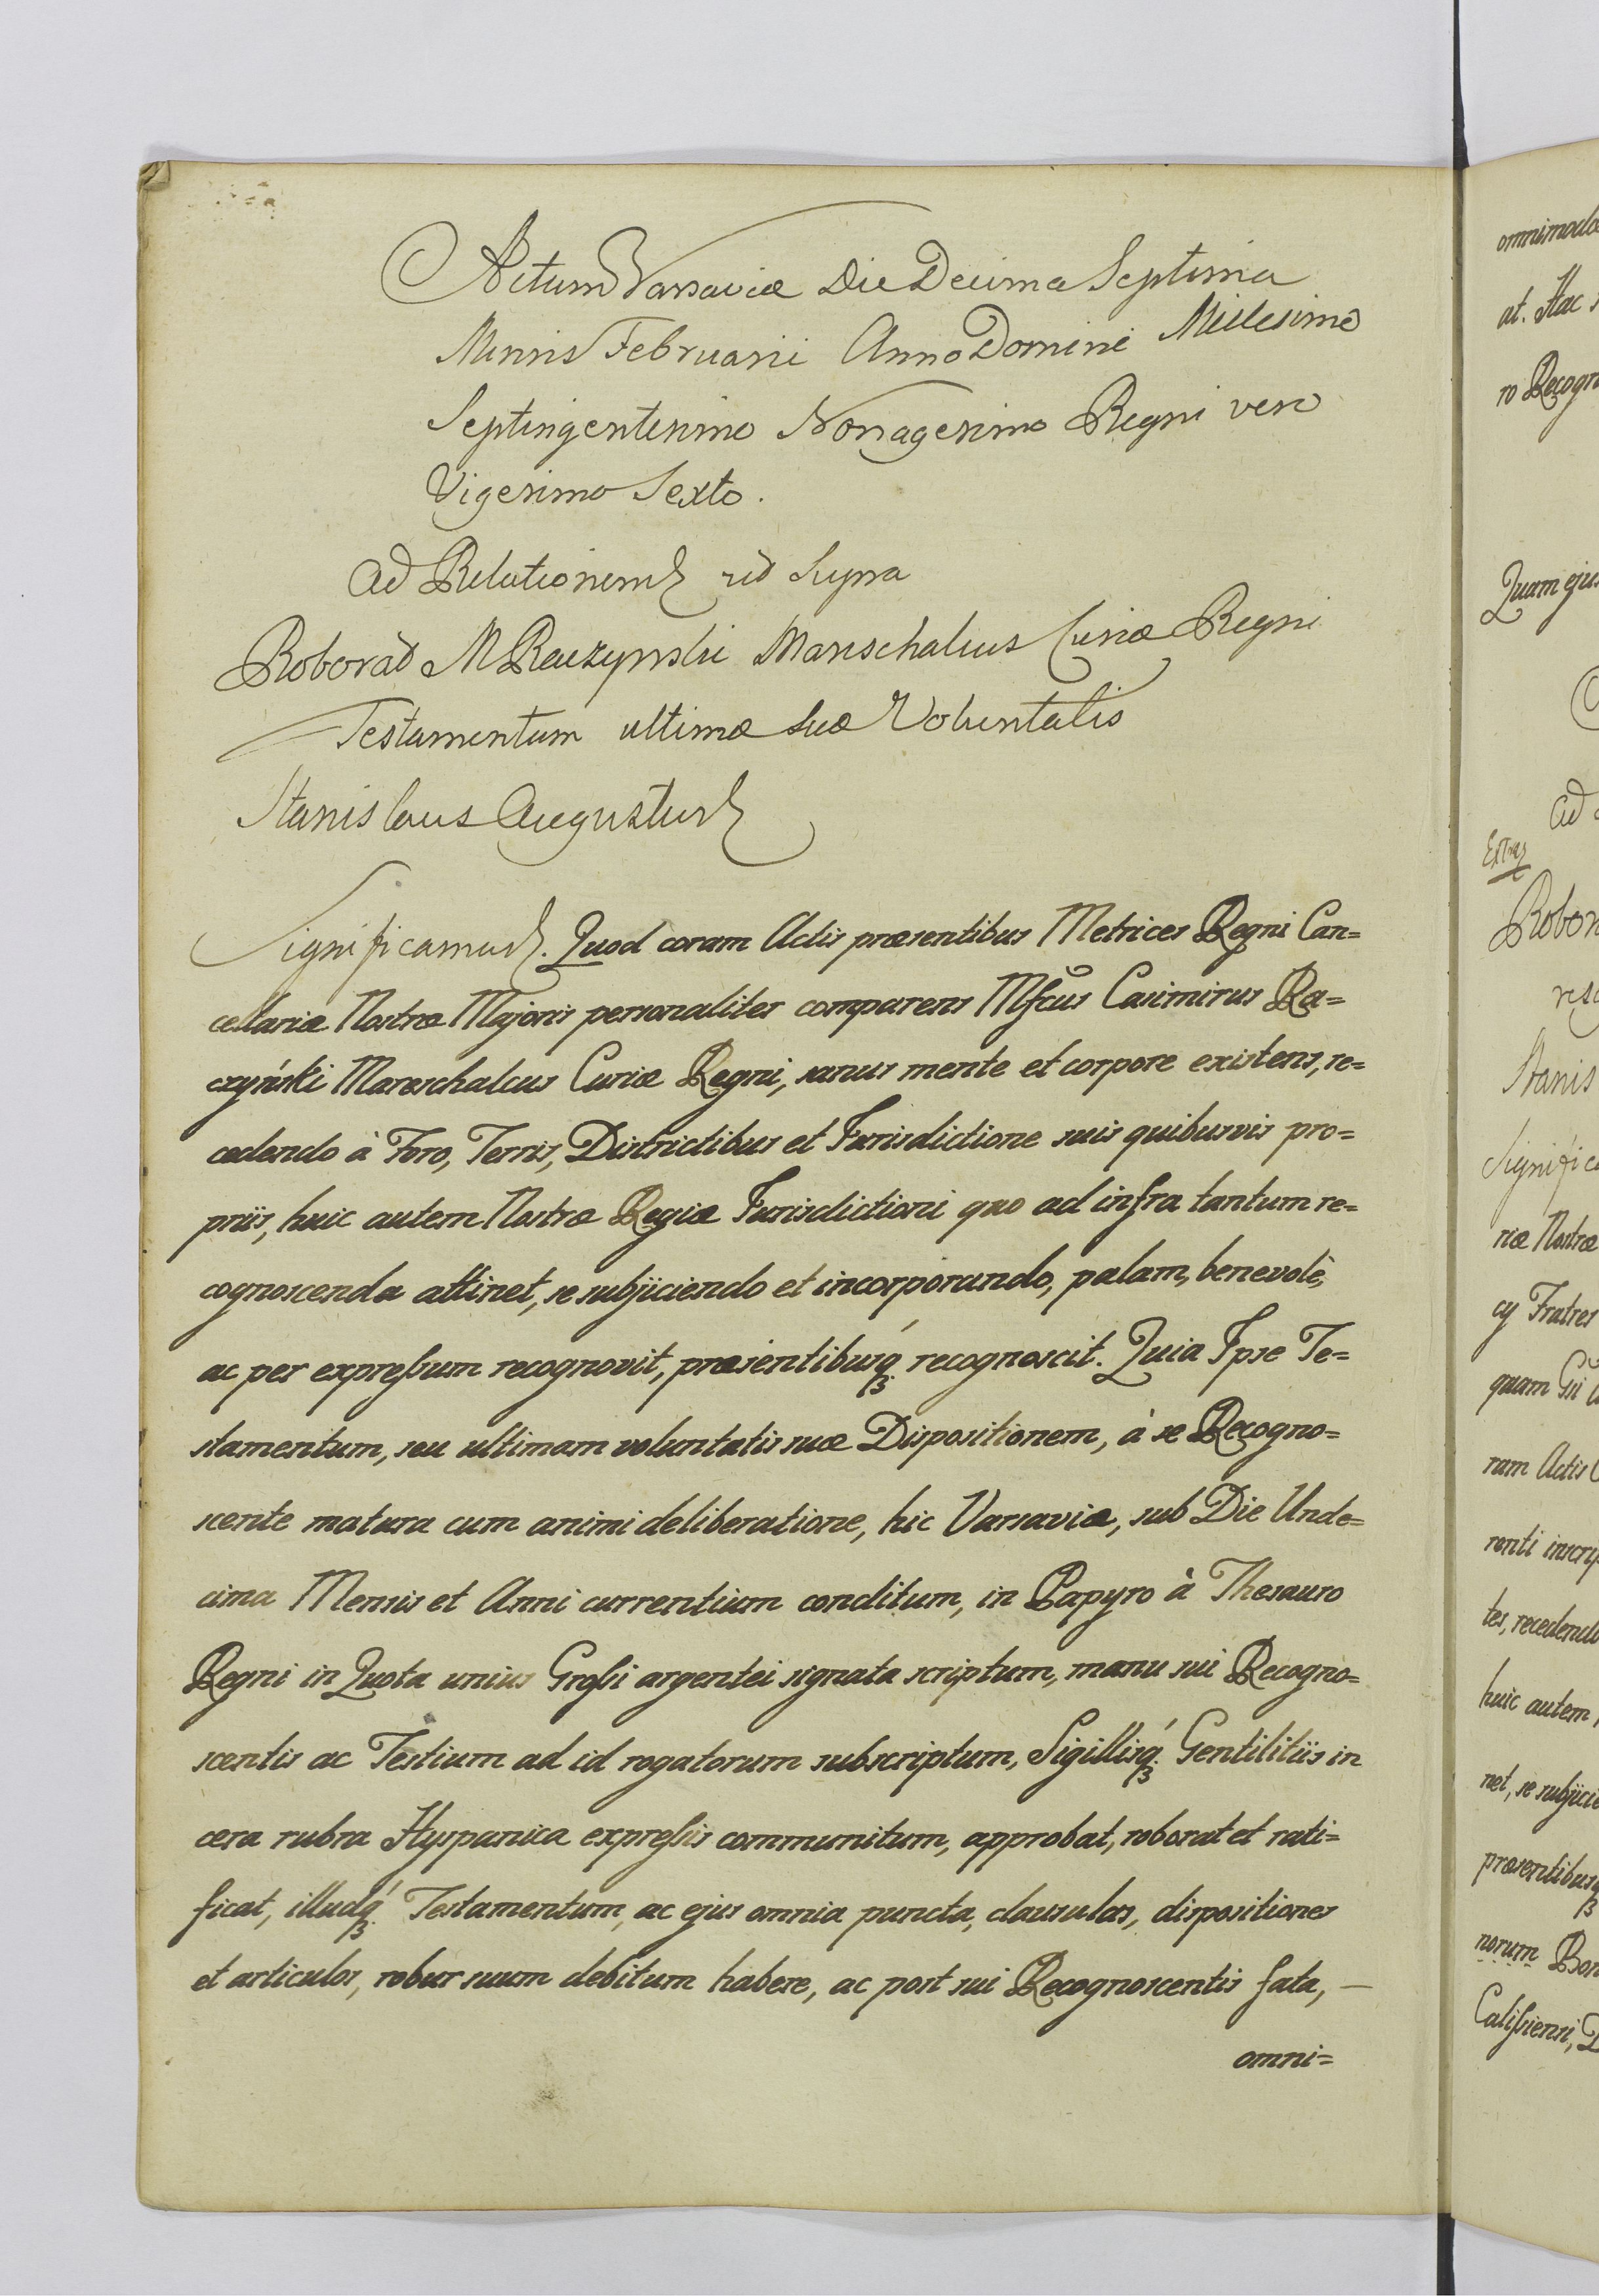 Actum Varsaviæ Die Decima Septima
Mensis Februarii Anno Domini Millesimo
Septingentesimo Nonagesimo Regni vero
Vigesimo Sexto.
Ad Relationem ut Supra
Roborat M Raczynski Mareschalcus Curiæ Regni
Testamentum ultimæ suæ Voluntatis
Stanislaus Augustus
Significamus. Quod coram Actis præsentibus Metrices Regni Can=
cellariæ Nostræ Majoris personaliter comparens Mfcus Casimirus Ra=
czyński Mareschalcus Curiæ Regni, sanus mente et corpore existens, re=
cedendo à Foro, Terris, Districtibus et Jurisdictione suis quibusvis pro=
priis, huic autem Nostræ Regiæ Jurisdictioni quo ad infra tantum re=
cognoscenda attinet, se subjiciendo et incorporando, palam, benevolè,
ac per expreſsum recognovit, præsentibusq́ꝫ recognoscit. Quia Ipse Te=
stamentum, seu ultimam voluntatis suæ Dispositionem, à se Recogno=
scente matura cum animi deliberatione, hic Varsaviæ, sub Die Unde=
cima Mensis et Anni currentium conditum, in Papyro à Thesauro
Regni in Quota unius Groſsi argentei signata scriptum, manu sui Recogno=
scentis ac Testium ad id rogatorum subscriptum, Sigillisq́ꝫ Gentilitiis in
cera rubra Hyspanica expreſsis communitum, approbat, roborat et rati=
ficat, illudq́ꝫ Testamentum, ac ejus omnia puncta, clausulas, dispositiones
et articulos, robur suum debitum habere, ac post sui Recognoscentis fata, —
omni=
omnimodo
at. Hac
ro Recogn
Quam ejus
Ad
Extras
Robor
Stanis
Significa
riæ Nostræ
cy Fratres
quam
ram Actis
renti inscrip
tes, recedendo
huic autem
net, se subjicie
præsentibusq
norum Bon
Caliſsiensi,